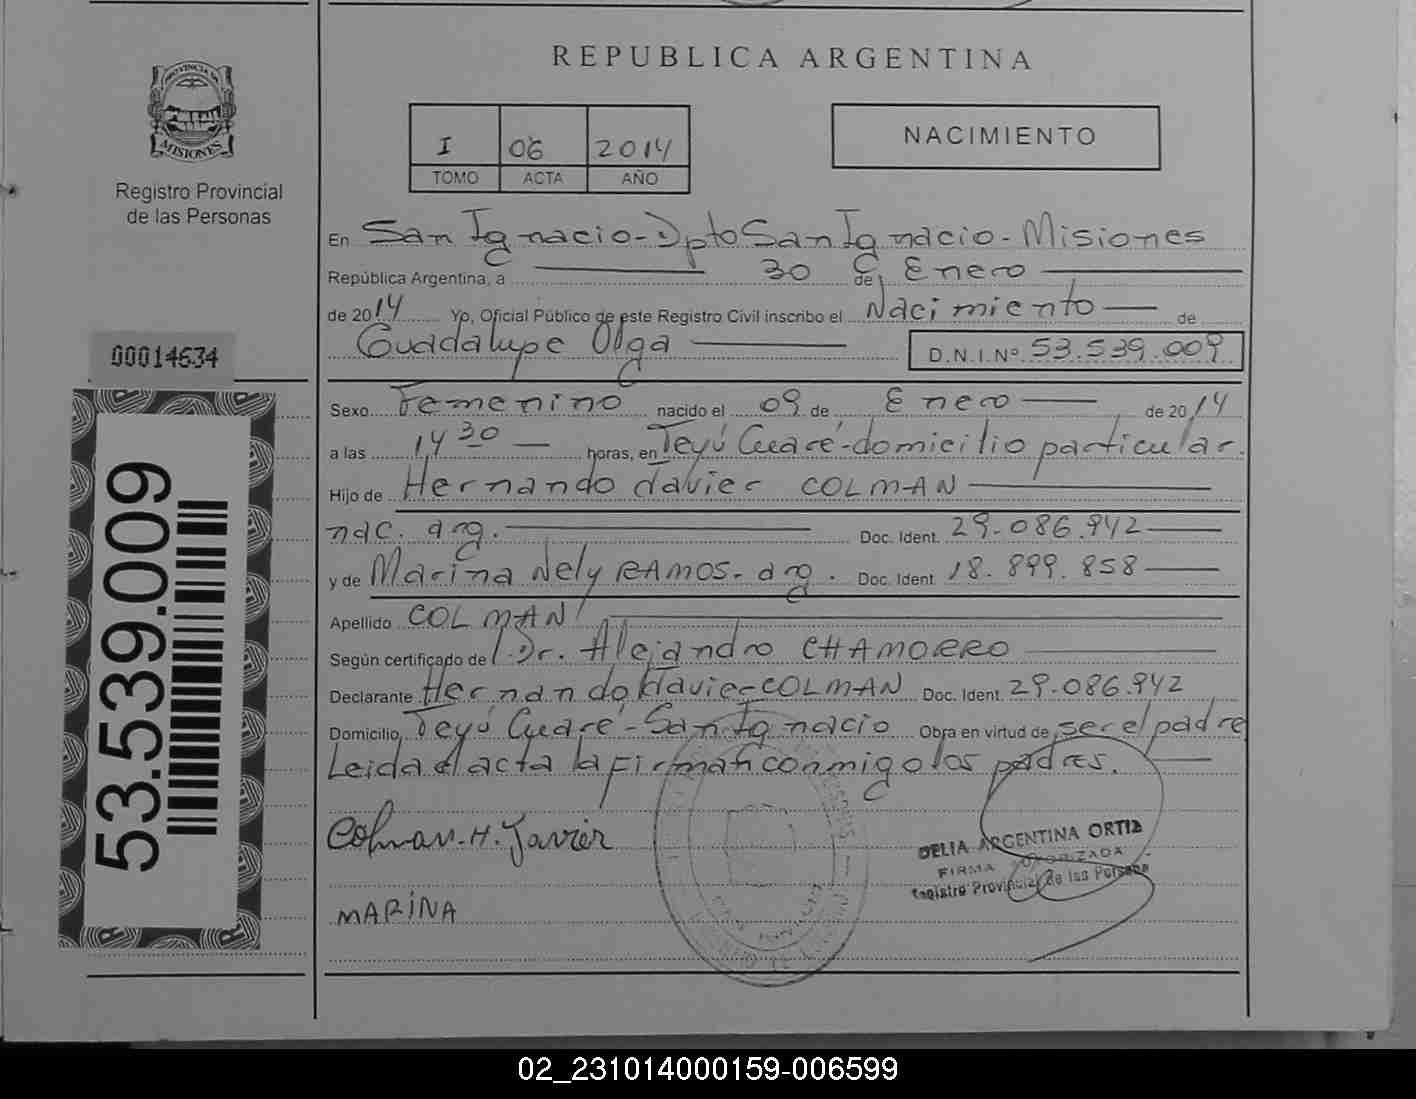 REPUBLICA ARGENTINA
PROVINCIA DE
MISIONES
Registro Provincial
de las Personas
I 06 2014
TOMO ACTA AÑO
NACIMIENTO
En San Ignacio - Dpto San Ignacio - Misiones
República Argentina, a 30 de Enero
de 2014 Yo, Oficial Público de este Registro Civil inscribo el Nacimiento de
Guadalupe Olga D.N.I.Nº 53.539.009
00014634
53.539.009
Sexo Femenino nacido el 09 de Enero de 2014
a las 14 30 horas, en Teyú Cuaré - domicilio particular.
Hijo de Hernando Javier COLMAN
nac. arg. Doc. Ident. 29.086.942
y de Marina Nely RAMOS - arg. Doc. Ident. 18.899.858
Apellido COLMAN
Según certificado de Dr. Alejandro CHAMORRO
Declarante Hernando Javier COLMAN Doc. Ident. 29.086.942
Domicilio Teyú Cuaré - San Ignacio Obra en virtud de ser el padre
Leida el acta la firman conmigo los padres.
Colman. H. Javier
MARINA
DELIA ARGENTINA ORTIZ
FIRMA AUTORIZADA
Registro Provincial de las Personas
02_231014000159-006599